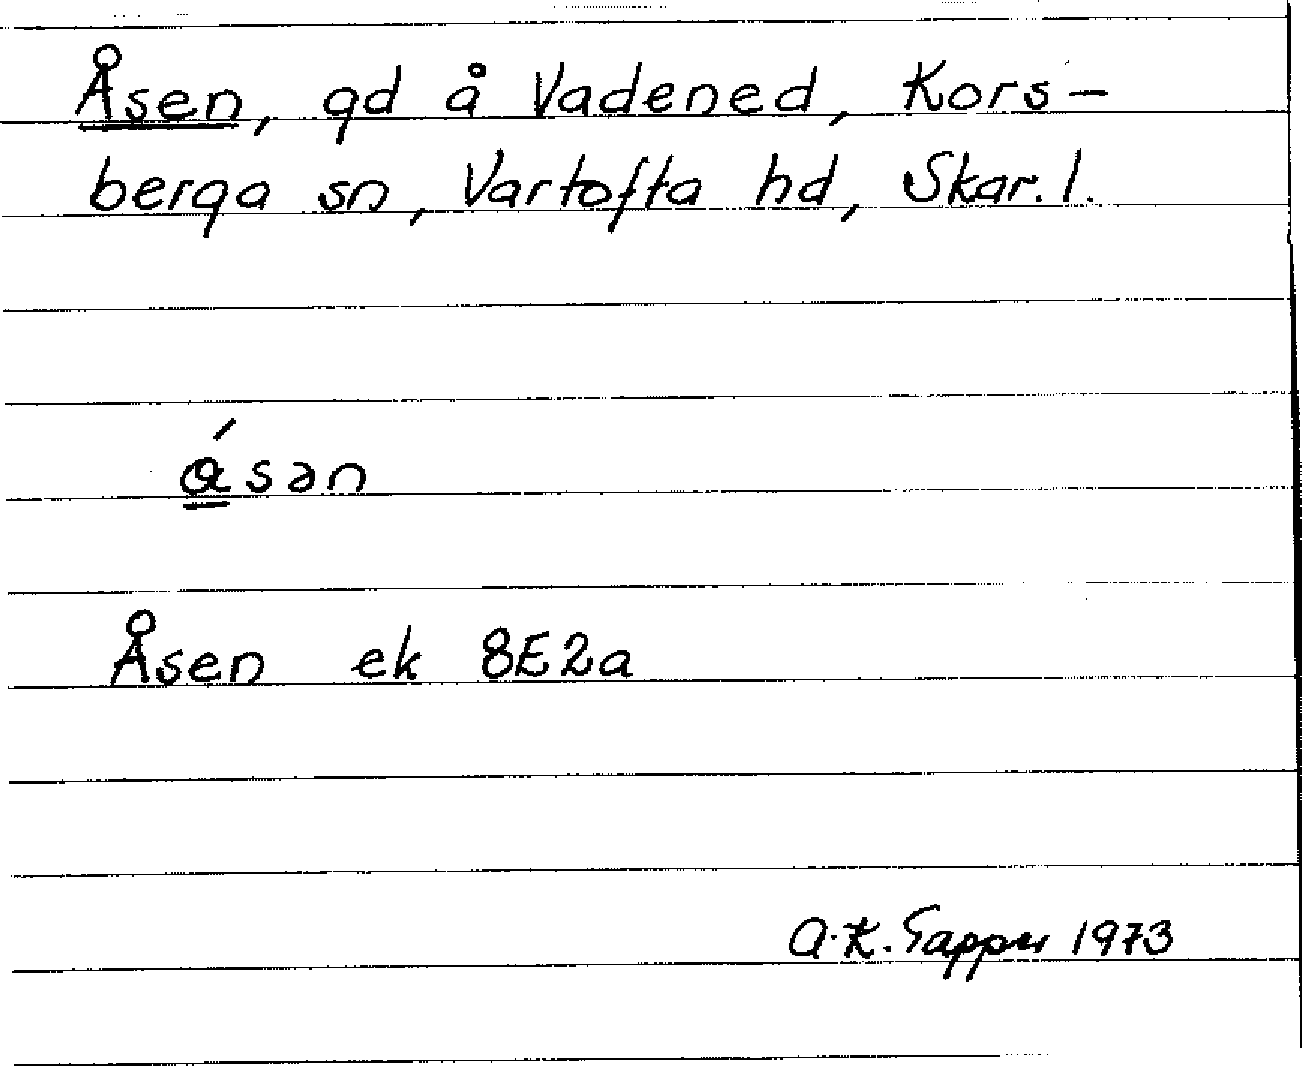 Åsen, gd å Vadened, Kors-
berga sn, Vartofta hd, Skar. l.
ɑ́sən
Åsen ek 8E2a
A.K. Tapper 1973